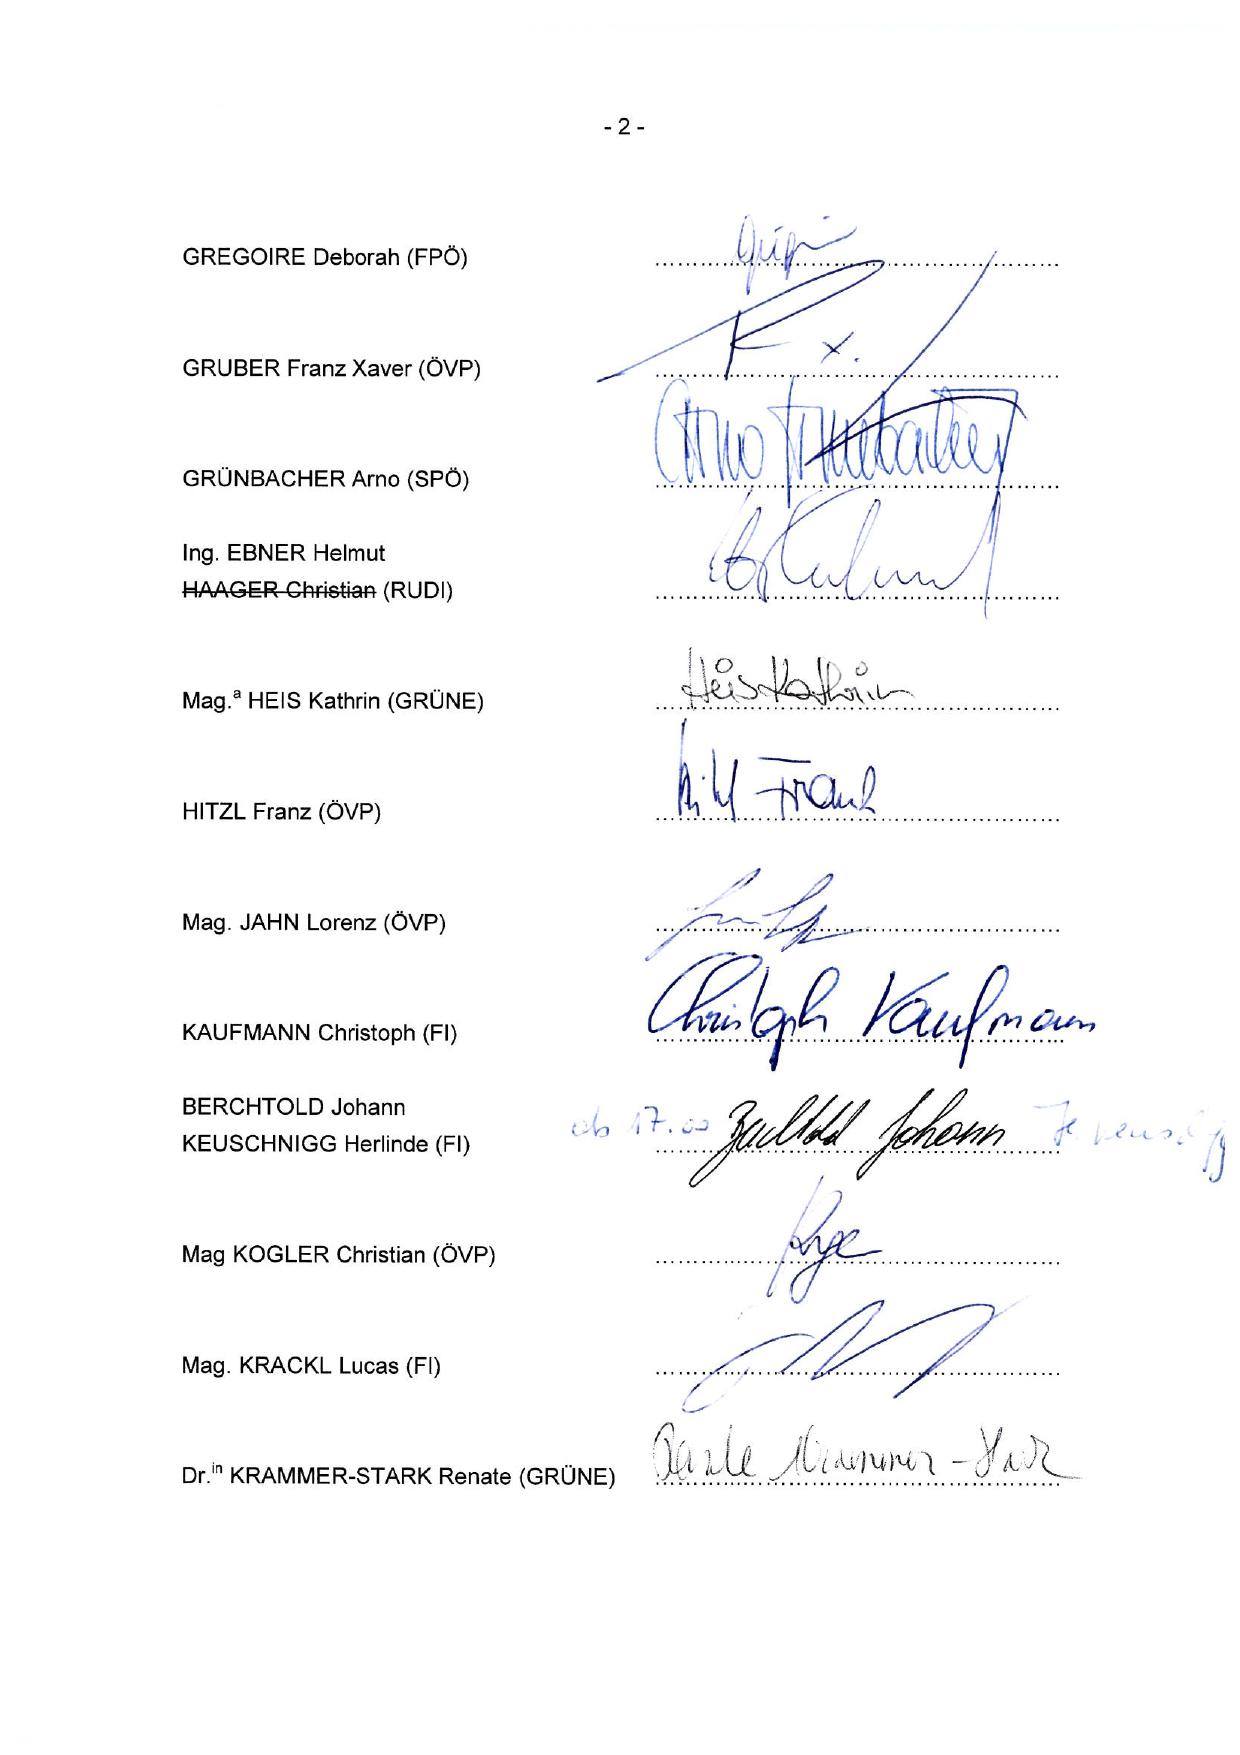 - 2 -
GREGOIRE Deborah (FPÖ)
GRUBER Franz Xaver (ÖVP)
x.
GRÜNBACHER Arno (SPÖ) Arno Grünbacher
Ing. EBNER Helmut
HAAGER Christian (RUDI)
Mag.ª HEIS Kathrin (GRÜNE) Heis Kathrin
HITZL Franz (ÖVP) Hitzl Franz
Mag. JAHN Lorenz (ÖVP)
KAUFMANN Christoph (FI) Christoph Kaufmann
BERCHTOLD Johann
KEUSCHNIGG Herlinde (FI) ab 17.00 Berchtold Johann
Mag KOGLER Christian (ÖVP)
Mag. KRACKL Lucas (FI)
Dr.ⁱⁿ KRAMMER-STARK Renate (GRÜNE) Renate Krammer-Stark